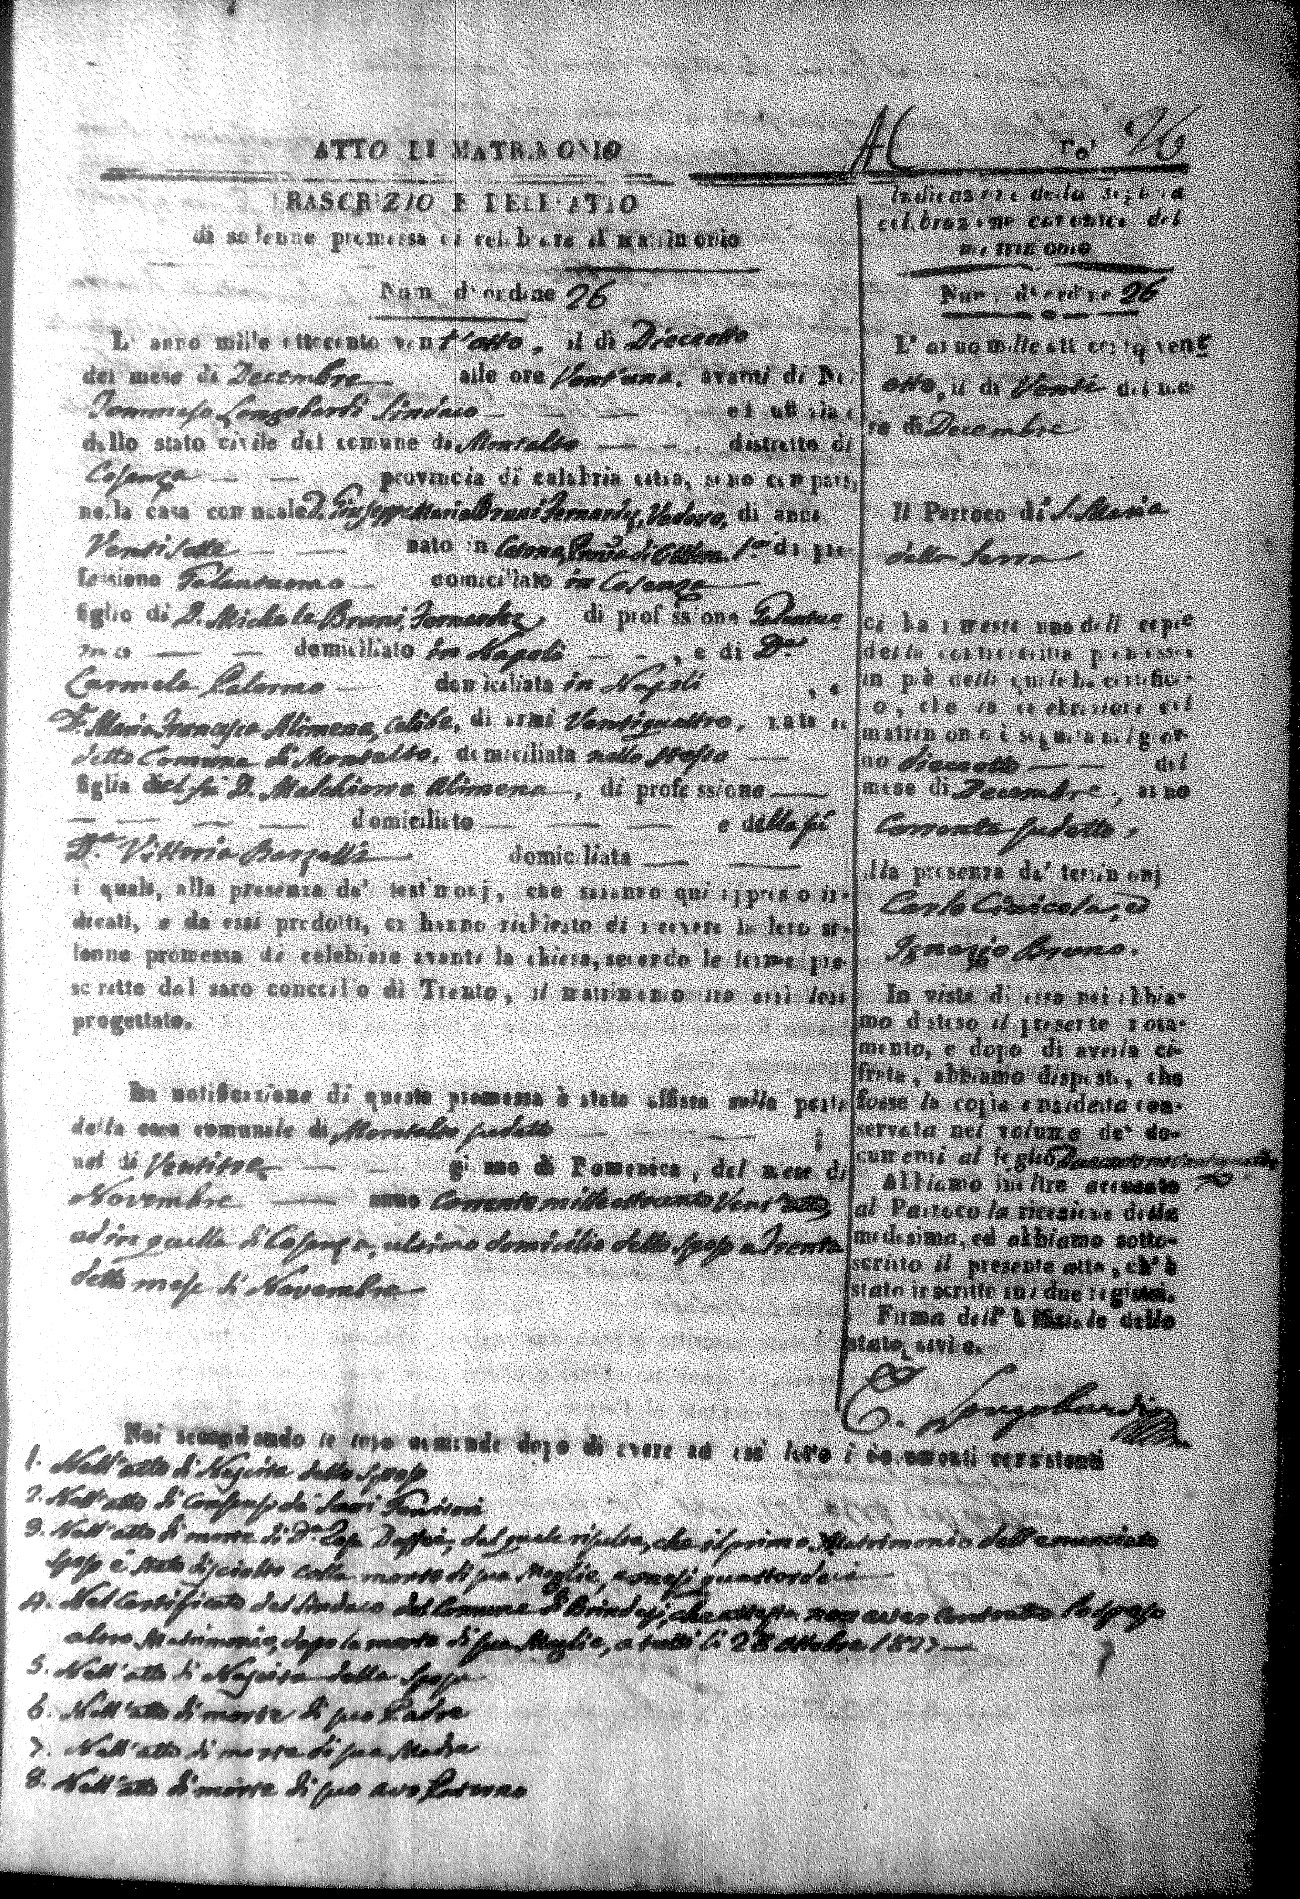 ATTO DI MATRIMONIO
TRASCRIZIONE DELL'ATTO
di solenne promessa di celebrare il matrimonio
Num. d'ordine 26
L'anno mille ottocento vent'otto, il dì Dieceotto
del mese di Decembre alle ore Vent'una, avanti di Noi
Tommaso Longobardi Sindaco ed uffiziale
dello stato civile del comune di Montalto distretto di
Cosenza provincia di calabria citra, sono comparsi
nella casa comunale D. Giuseppe Maria Bruni Fernandez, Vedovo, di anni
Ventisette nato in di pro-
fessione Galantuomo domiciliato in Cosenza
figlio di D. Michele Bruni Fernandez di professione Galantuo-
mo domiciliato in Napoli, e di D.na
Carmela Palermo domiciliata in Napoli, e
D.a Maria Francesca Alimena, Celibe, di anni Ventiquattro, nata in
detto Comune di Montalto, domiciliata nello stesso
figlia del fù D. Melchiorre Alimena, di professione
domiciliato e della fù
D.a Vittoria domiciliata
i quali, alla presenza de' testimonj, che saranno qui appresso in-
dicati, e da essi prodotti, ci hanno richiesto di ricevere la loro so-
lenne promessa di celebrare avanti la chiesa, secondo le forme pre-
scritte dal sacro concilio di Trento, il matrimonio tra essi loro
progettato.
La notificazione di questa promessa è stata affissa sulla porta
della casa comunale di Montalto sudetto
nel dì Ventitre giorno di Domenica, del mese di
Novembre anno Corrente mille ottocento Vent'otto,
ed in quella di Cosenza, ultimo domicilio dello sposo a Trenta
detto mese di Novembre
Noi secondando le loro domande dopo di avere ad essi letto i documenti consistenti
1. Nell'atto di Nascita dello Sposo
2. Nell'atto di Consenso de' suoi Genitori
3. Nell'atto di morte di D.a dal quale risulta, che il primo Matrimonio dell'enunciato
sposo è stato disciolto colla morte di sua Moglie,
4. Nel Certificato del Sindaco del Comune di Brindesi, che attesta non aver contratto lo sposo
altro Matrimonio, dopo la morte di sua Moglie, a tutti li 28 ottobre 1827
5. Nell'atto di Nascita della Sposa
6. Nell'atto di morte di suo Padre
7. Nell'atto di morte di sua Madre
8. Nell'atto di morte di suo avo Paterno
AL
Fo. 26
Indicazione della seguita
celebrazione canonica del
matrimonio
Num. d'ordine 26
L'anno mille ottocento vent'
otto, il dì Venti del me-
se di Decembre
Il Parroco di S. Maria
della Serra
ci ha rimessa una delle copie
della controscritta promessa
in piè della quale ha certifica-
to, che la celebrazione del
matrimonio è seguita nel gior-
no dieceotto del
mese di Decembre, anno
Corrente sudetto,
alla presenza de' testimonj
Carlo Cinicola, ed
Ignazio Bruno.
In vista di essa noi abbia-
mo disteso il presente nota-
mento, e dopo di averla ci-
frata, abbiamo disposto, che
fosse la copia anzidetta con-
servata nel volume de' do-
cumenti al foglio
Abbiamo inoltre accusato
al Parroco la ricezione della
medesima, ed abbiamo sotto-
scritto il presente atto, ch'è
stato inscritto su i due registri.
Firma dell'Uffiziale dello
stato civile.
T. Longobardi